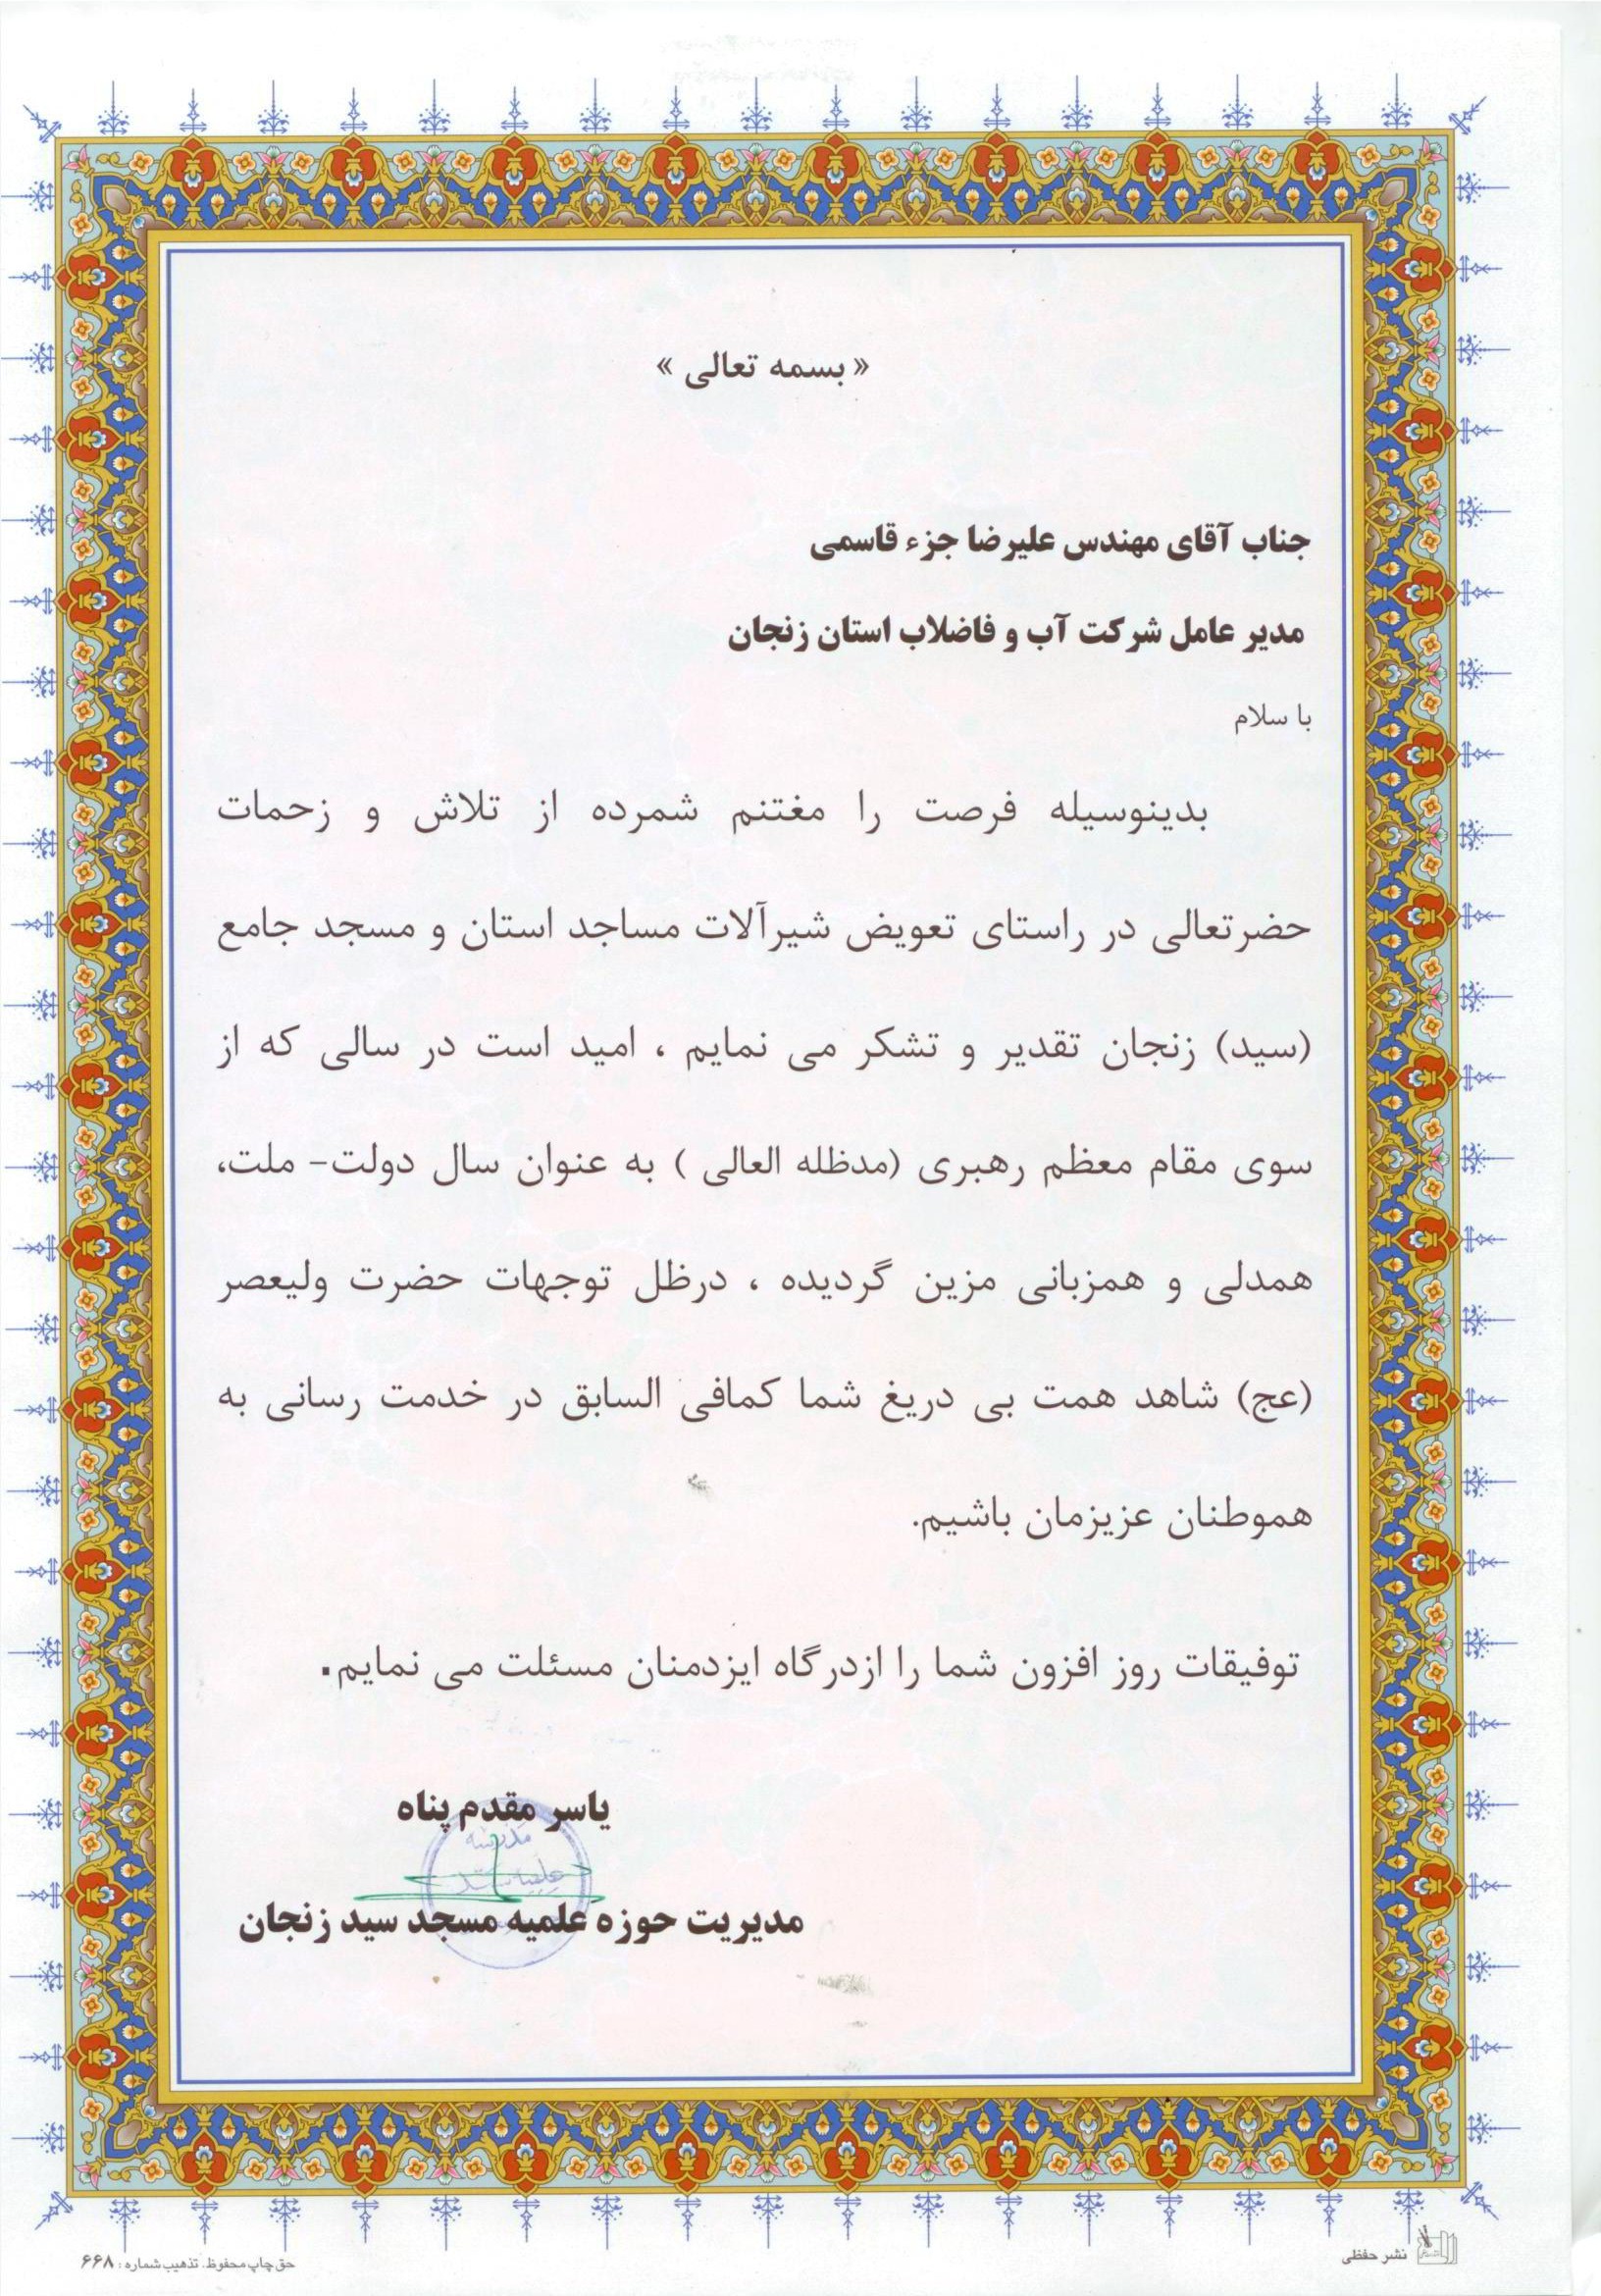 « بسمه تعالی »
جناب آقای مهندس علیرضا جزء قاسمی
مدیر عامل شرکت آب و فاضلاب استان زنجان
با سلام
بدینوسیله فرصت را مغتنم شمرده از تلاش و زحمات
حضرتعالی در راستای تعویض شیرآلات مساجد استان و مسجد جامع
(سید) زنجان تقدیر و تشکر می نمایم ، امید است در سالی که از
سوی مقام معظم رهبری (مدظله العالی ) به عنوان سال دولت- ملت،
همدلی و همزبانی مزین گردیده ، درظل توجهات حضرت ولیعصر
(عج) شاهد همت بی دریغ شما کمافی السابق در خدمت رسانی به
هموطنان عزیزمان باشیم.
توفیقات روز افزون شما را ازدرگاه ایزدمنان مسئلت می نمایم.
یاسر مقدم پناه
مدرسه
علمیه سید
مدیریت حوزه علمیه مسجد سید زنجان
نشر حفظی
حق چاپ محفوظ. تذهیب شماره : ۶۶۸